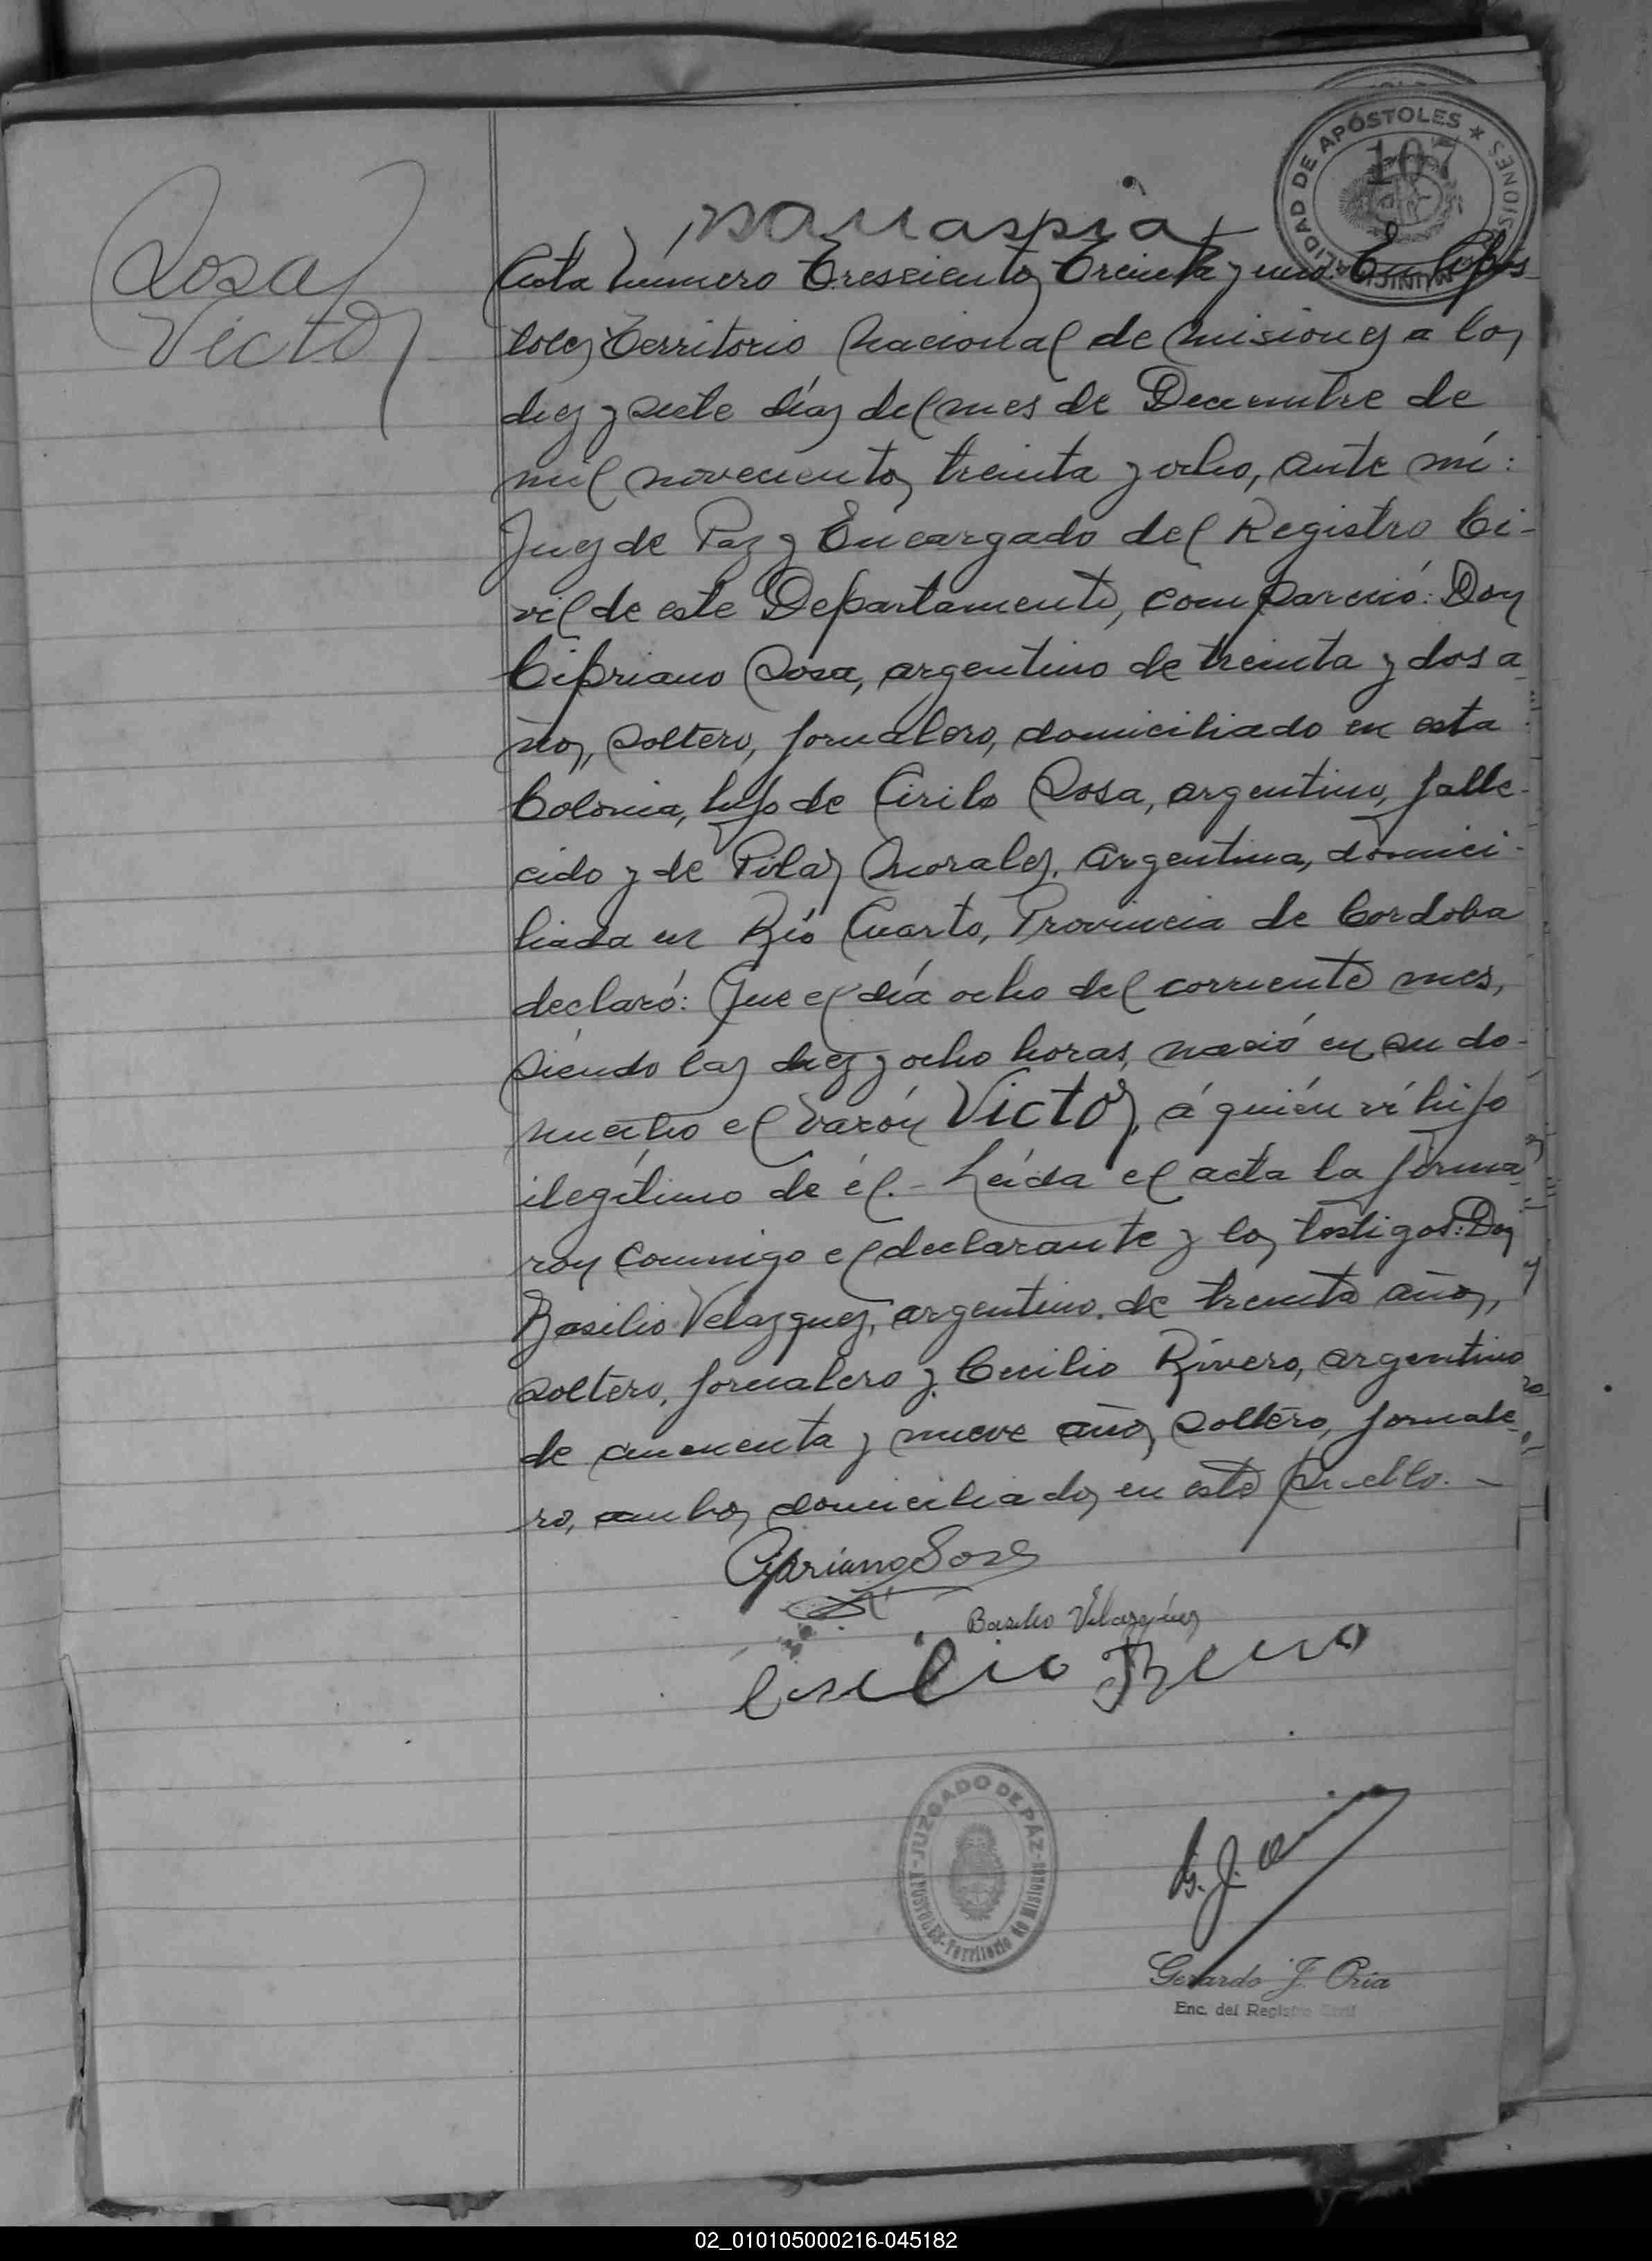 MUNICIPALIDAD DE APÓSTOLES ★ MISIONES
107
Sosa
Victor
Acta número Trescientos Treinta y uno. En Após-
toles, Territorio Nacional de Misiones a los
diez y siete días del mes de Diciembre de
mil novecientos treinta y ocho, ante mí:
Juez de Paz y Encargado del Registro Ci-
vil de este Departamento, compareció: Don
Cipriano Sosa, argentino de treinta y dos a-
ños, soltero, jornalero, domiciliado en esta
Colonia, hijo de Cirilo Sosa, argentino, falle-
cido y de Pilar Morales, argentina, domici-
liada en Río Cuarto, Provincia de Cordoba
declaró: Que el día ocho del corriente mes,
siendo las diez y ocho horas, nació en su do-
micilio el varón Victor, á quién ví hijo
ilegítimo de él.- Leída el acta la firma-
ron conmigo el declarante y los testigos: Don
Basilio Velazquez, argentino, de treinta años,
soltero, jornalero y Cecilio Rivero, argentino
de cincuenta y nueve años, soltero, jornale-
ro, ambos domiciliados en este pueblo. -
Cipriano Sosa
Basilio Velazquez
JUZGADO DE PAZ - APOSTOLES - Territorio de Misiones
G. J. Oria
Gerardo J. Oria
Enc. del Registro Civil
02_010105000216-045182